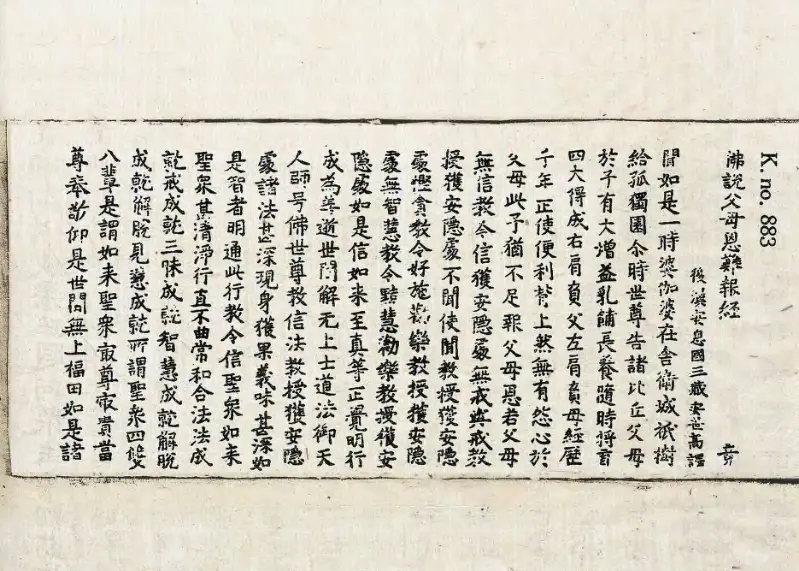 K. no. 883
佛說父母恩難報經
後漢安息國三藏安世高譯
聞如是一時婆伽婆在舍衛城祇樹
給孤獨園尒時世尊告諸比丘父母
於子有大增益乳餔長養隨時將育
四大得成右肩負父左肩負母經歷
千年正使便利背上然無有怨心於
父母此子猶不足報父母恩若父母
無信教令信獲安隱處無戒與戒教
授獲安隱處不聞使聞教授獲安隱
處慳貪教令好施勸樂教授獲安隱
處無智慧教令黠慧勸樂教授獲安
隱處如是信如来至真等正覺明行
成為善逝世間解无上士道法御天
人師号佛世尊教信法教授獲安隱
處諸法甚深現身獲果義味甚深如
是智者明通此行教令信聖衆如来
聖衆甚清淨行直不曲常和合法法成
就戒成就三昧成就智慧成就解脫
成就解脫見慧成就所謂聖衆四雙
八輩是謂如来聖衆最尊最貴當
尊奉敬仰是世間無上福田如是諸